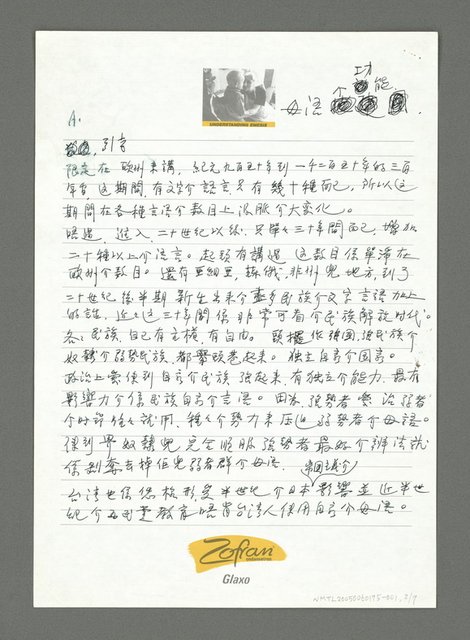 UNDERSTANDING EMESIS
功能
母語
A.
引言
限定在 歐州來講，紀元九百五十年到一千二百五十年的三百
年當，這期間，有文字个語言只有幾十種而已，所以這
期間在各種言語个數目上沒脈个大變化。
唔過，進入二十世紀以後，只單三十年間而已，增加
二十種以上个流言。起頭有講過，這數目係單淨在
歐州个數目。還有亞細亞，蘇俄，非州兜地方，到了
二十世紀後半期新生出來个盡多民族个文字言語加上
的話，近這三十年間係非常可看个民族解放時代。
各民族，自己有主權，有自由。
奴隸个弱勢民族，都醒改來起來。獨立自家个國家。
政治上當使到自家个民族強起來，有獨立个能力，最有
影響力个係民族自家个言語。因為，強勢者當治弱者
个時節，使就用，種个勢力來壓迫弱勢者个母語。
係到厥奴隸兜完全順服強勢者最好个辦法就
係剝奪去掉佢兜弱者群个母語。
帝國主義个
台灣也係恁樣形受半世紀个日本影響並近半世
紀个國民黨教育唔肯台灣人使用自家个母語。
Zofran
ondansetron
Glaxo
NMTL20050060175-001, 2/7